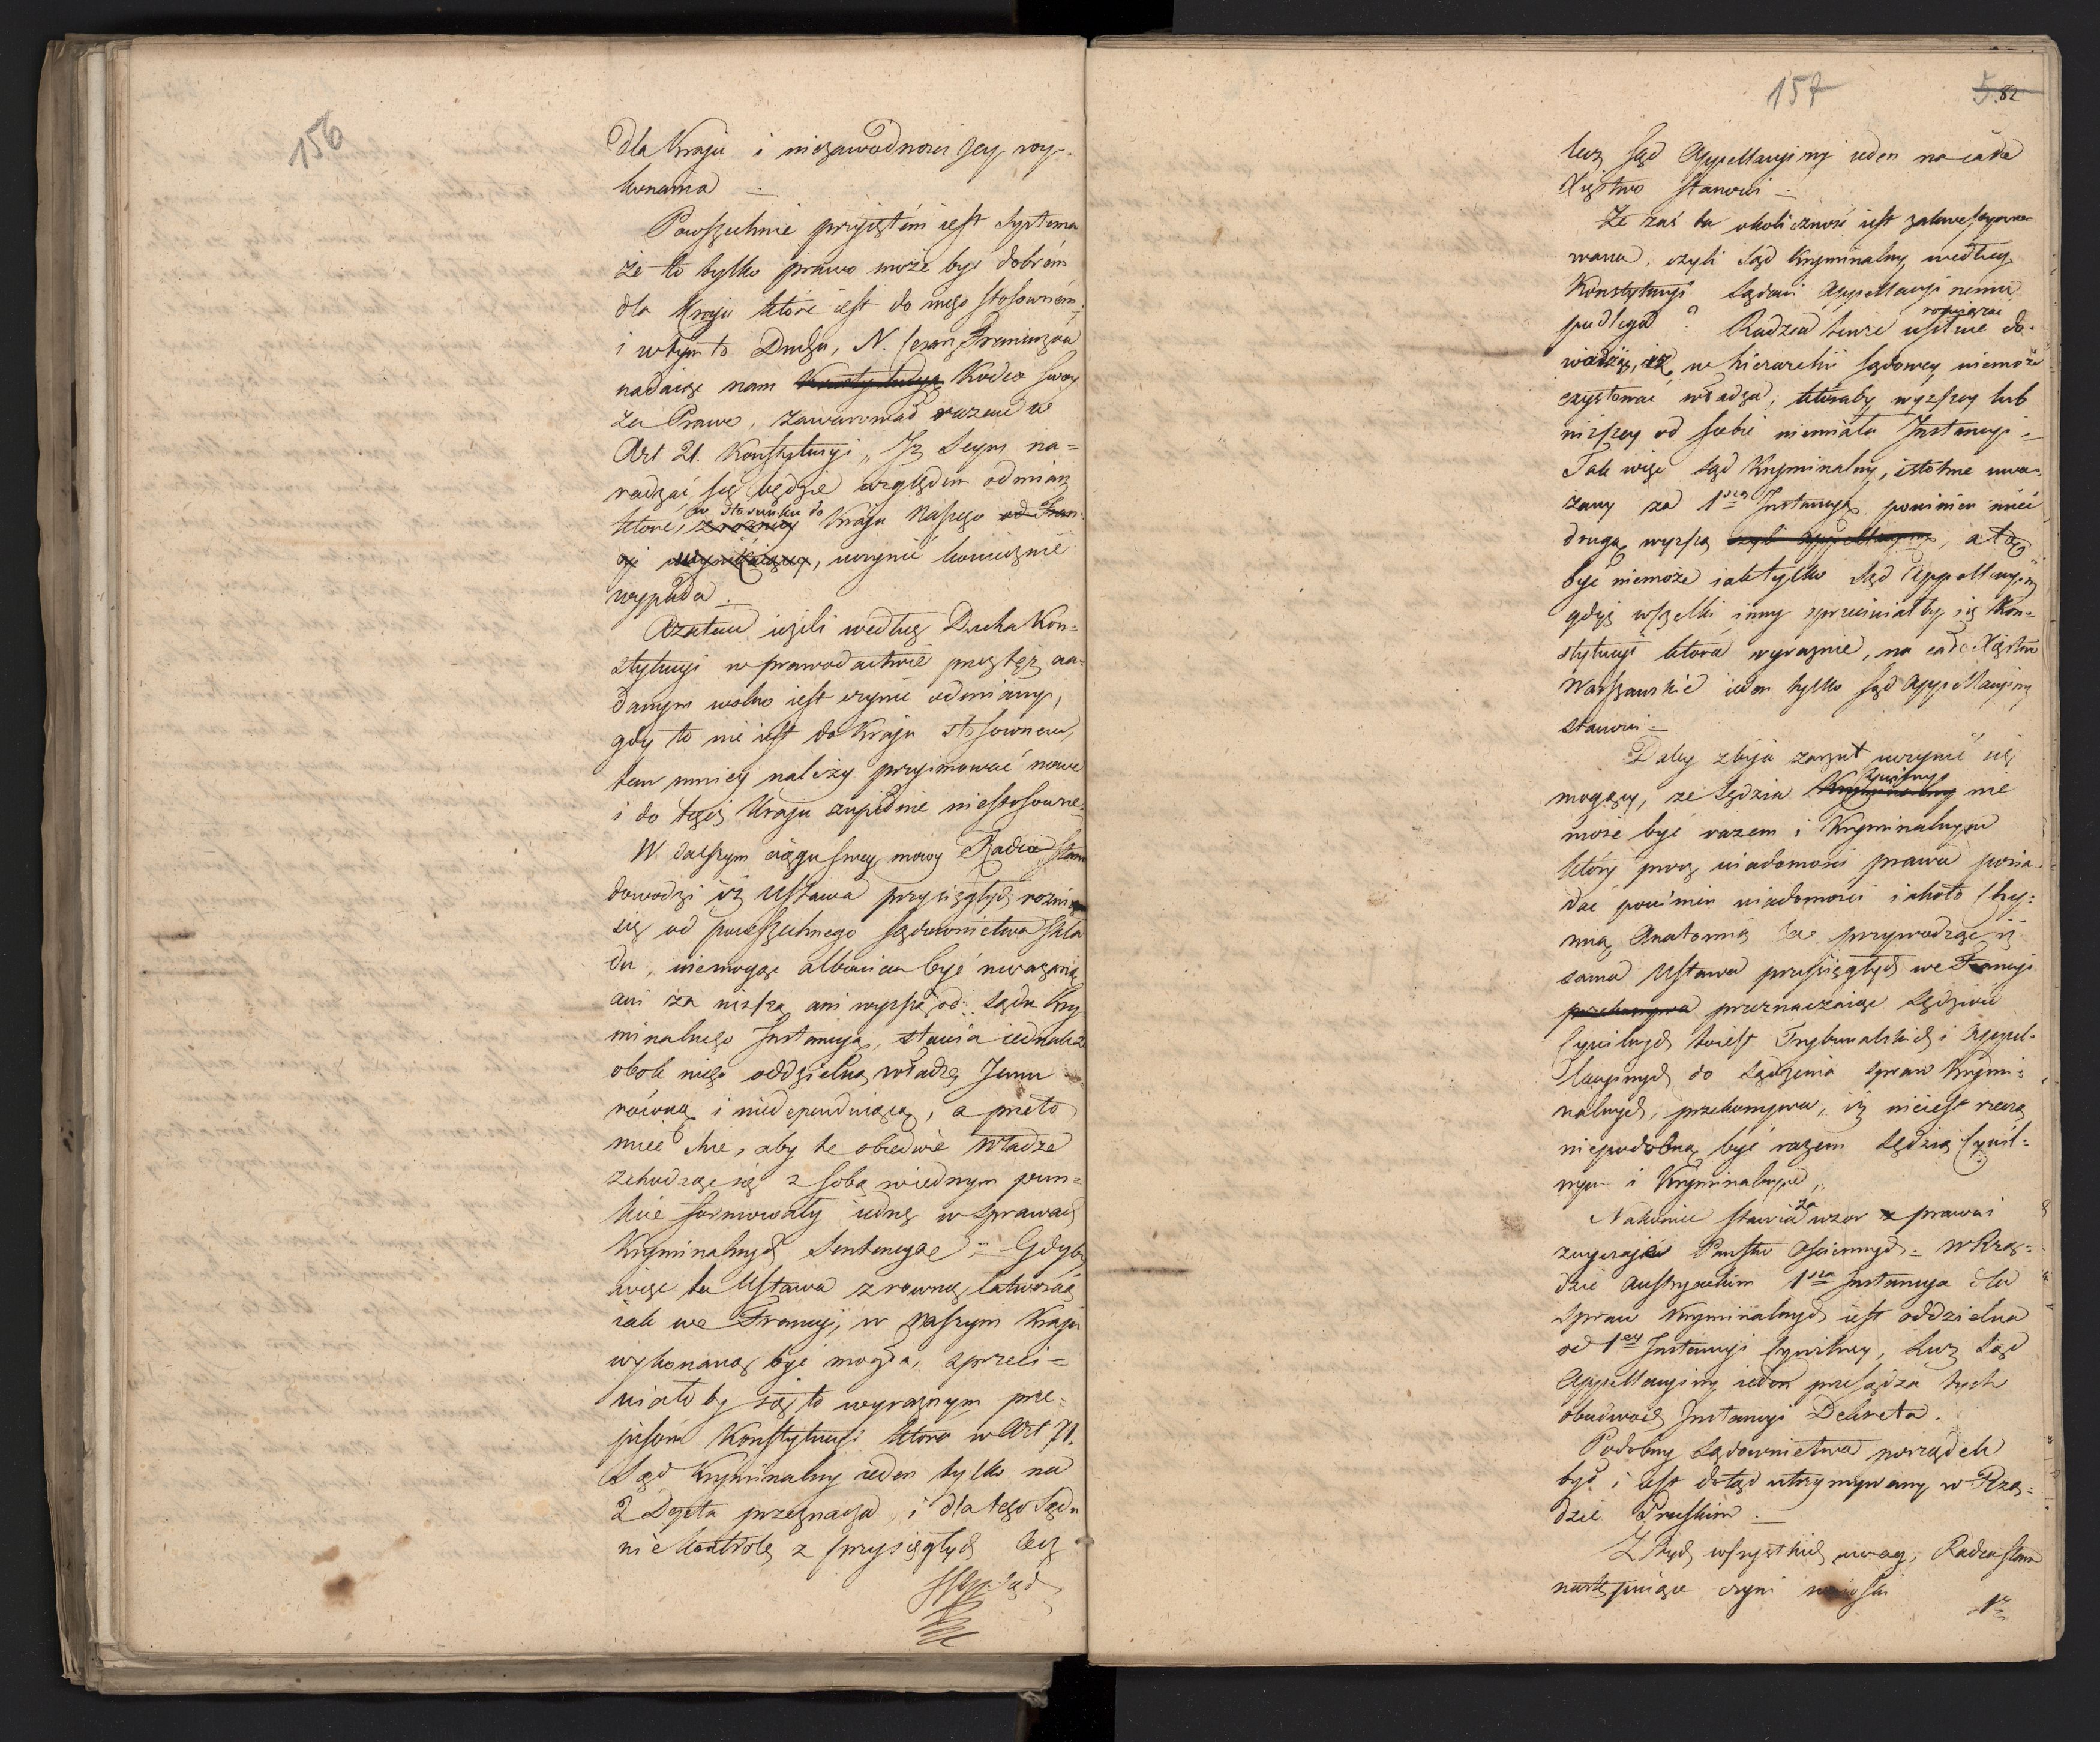 156
dla Kraju i niezawodności jey wy-
konania
Powszechnie przyiętém iest Systema
że to tylko prawo może być dobrém
dla Kraju które iest do niego stosowném,
i w tym to Duchu, N. Cesarz Francuzów
nadaiąc nam Konstytucyą Kodex swoy
za Prawo, zawarował razem w
Art 21. Konstytucyi „Iż Seym na=
radzać się będzie względem odmian
w stosunku do
które, z rożnicy Kraju Naszego od Fran
cyi wynikaiącey, uczynić koniecznie
wypada
A zatem ieżeli według Ducha Kon=
stytucyi w prawodactwie przez też na=
danym wolno iest czynić odmiany,
gdy to nie iest do Kraju stosownem,
tem mniey należy przyimować nowe
i do tegoż Kraju zupełnie niestosowne.
W dalszym ciągu swey mowy Radca Stanu
dowodzi iż Ustawa przysięgłych rożni
się od powszechnego sądownictwa skła
du, niemogąc albowiem być uważaną
ani za niższą ani wyższą od Sądu Kry
minalnego Instancyą, stawia iednakże
obok niego oddzielną władzę Jemu
równą i niedependuiącą, a przeto
mieć chce, aby te obiedwie Władze
schodząc się z sobą w iednym pun=
kcie formowały iedną w Sprawach
Kryminalnych Sentencyę = Gdyby
więc ta Ustawa z równą łatwością
iak we Francyi, w Naszym Kraju
wykonaną być mogła, sprzeci=
wiało by się to wyraźnym prze=
pisom Konstytucyi która w Art 71.
Sąd Kryminalny ieden tylko na
2 Depta przeznacza, i dla tego Sądu
nie Kontrolę z przysięgłych lecz
Sąd
157
5. 82
lecz Sąd Appellacyiny ieden na całe
Xięstwo stanowi
Że zaś ta okoliczność iest zakwestyono
wana, czyli Sąd Kryminalny według
Konstytucyi Sądowi Appellacyinemu
rozwiązać
podlega? Radca tenże usilnie do=
wodzi, iż w hierarchii sądowey niemoże
exystować władza, któraby wyższey lub
niższey od siebie niemiała Instancyi =
Tak więc Sąd Kryminalny, istotnie uwa=
żany za 1szą Instancyą powinien mieć
drugą wyższą czyli Appellacyiną, a tą
być niemoże iak tylko Sąd Appellacyiny
gdyż wszelki inny sprzeciwiałby się Kon=
stytucyi która wyraźnie, na całe Xięstwo
Warszawskie ieden tylko Sąd Appellacyiny
stanowi =
Daley zbija zarzut uczynić się
Cywilny
mogący, że Sędzia Kryminalny nie
może być razem i Kryminalnym
który procz wiadomości prawa posia
dać powinien wiadomości iakoto Chy=
mią Anatomią &c. przywodząc iż
sama Ustawa przysięgłych we Francyi
przekonywa przeznaczaiąc Sędziów
Cywilnych toiest Trybunalskich i Appel=
lacyinych do Sądzenia Spraw Krymi=
nalnych, przekonywa, iż nieiest rzeczą
niepodobną być razem Sędzią Cywil=
nym i Kryminalnym,,
za
Nakoniec stawia wzor z prawa i
zwyczajów Państw Ościennych = W Rzą=
dzie Austryackim 1sza Instancya dla
Spraw Kryminalnych iest oddzielna
od 1ey Instancyi Cywilney, lecz Sąd
Appellacyiny ieden przesądza tych
obudwóch Instancyi Dekreta.
Podobny Sądownictwa porządek
był i iest dotąd utrzymywany w Rzą=
dzie Pruskim.
Z tych wszystkich uwag, Radca Stanu
następuiące czyni wnioski
1o